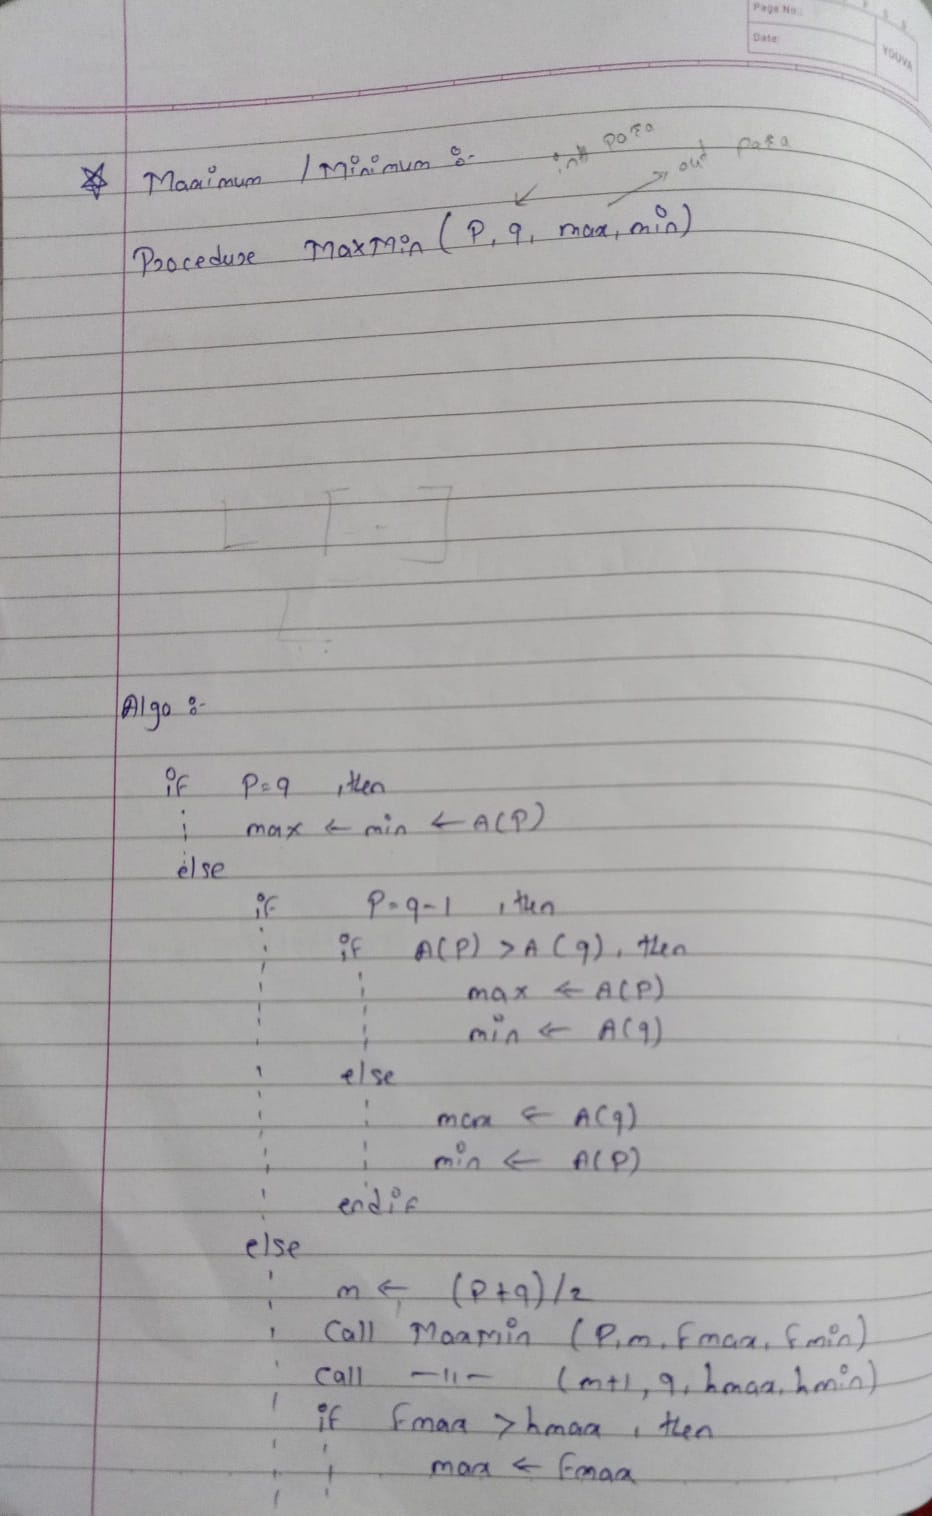 Page No.:
Date:
YOUVA
Maximum / Minimum :-
int para
out para
Procedure MaxMin (P, q, max, min)
Algo :-
if P=q , then
max ← min ← A(P)
else
if P=q-1 , then
if A(P) > A(q), then
max ← A(P)
min ← A(q)
else
max ← A(q)
min ← A(P)
endif
else
m ← (P+q)/2
Call MaxMin (P, m, fmax, fmin)
Call —11— (m+1, q, hmax, hmin)
if fmax > hmax , then
max ← fmax